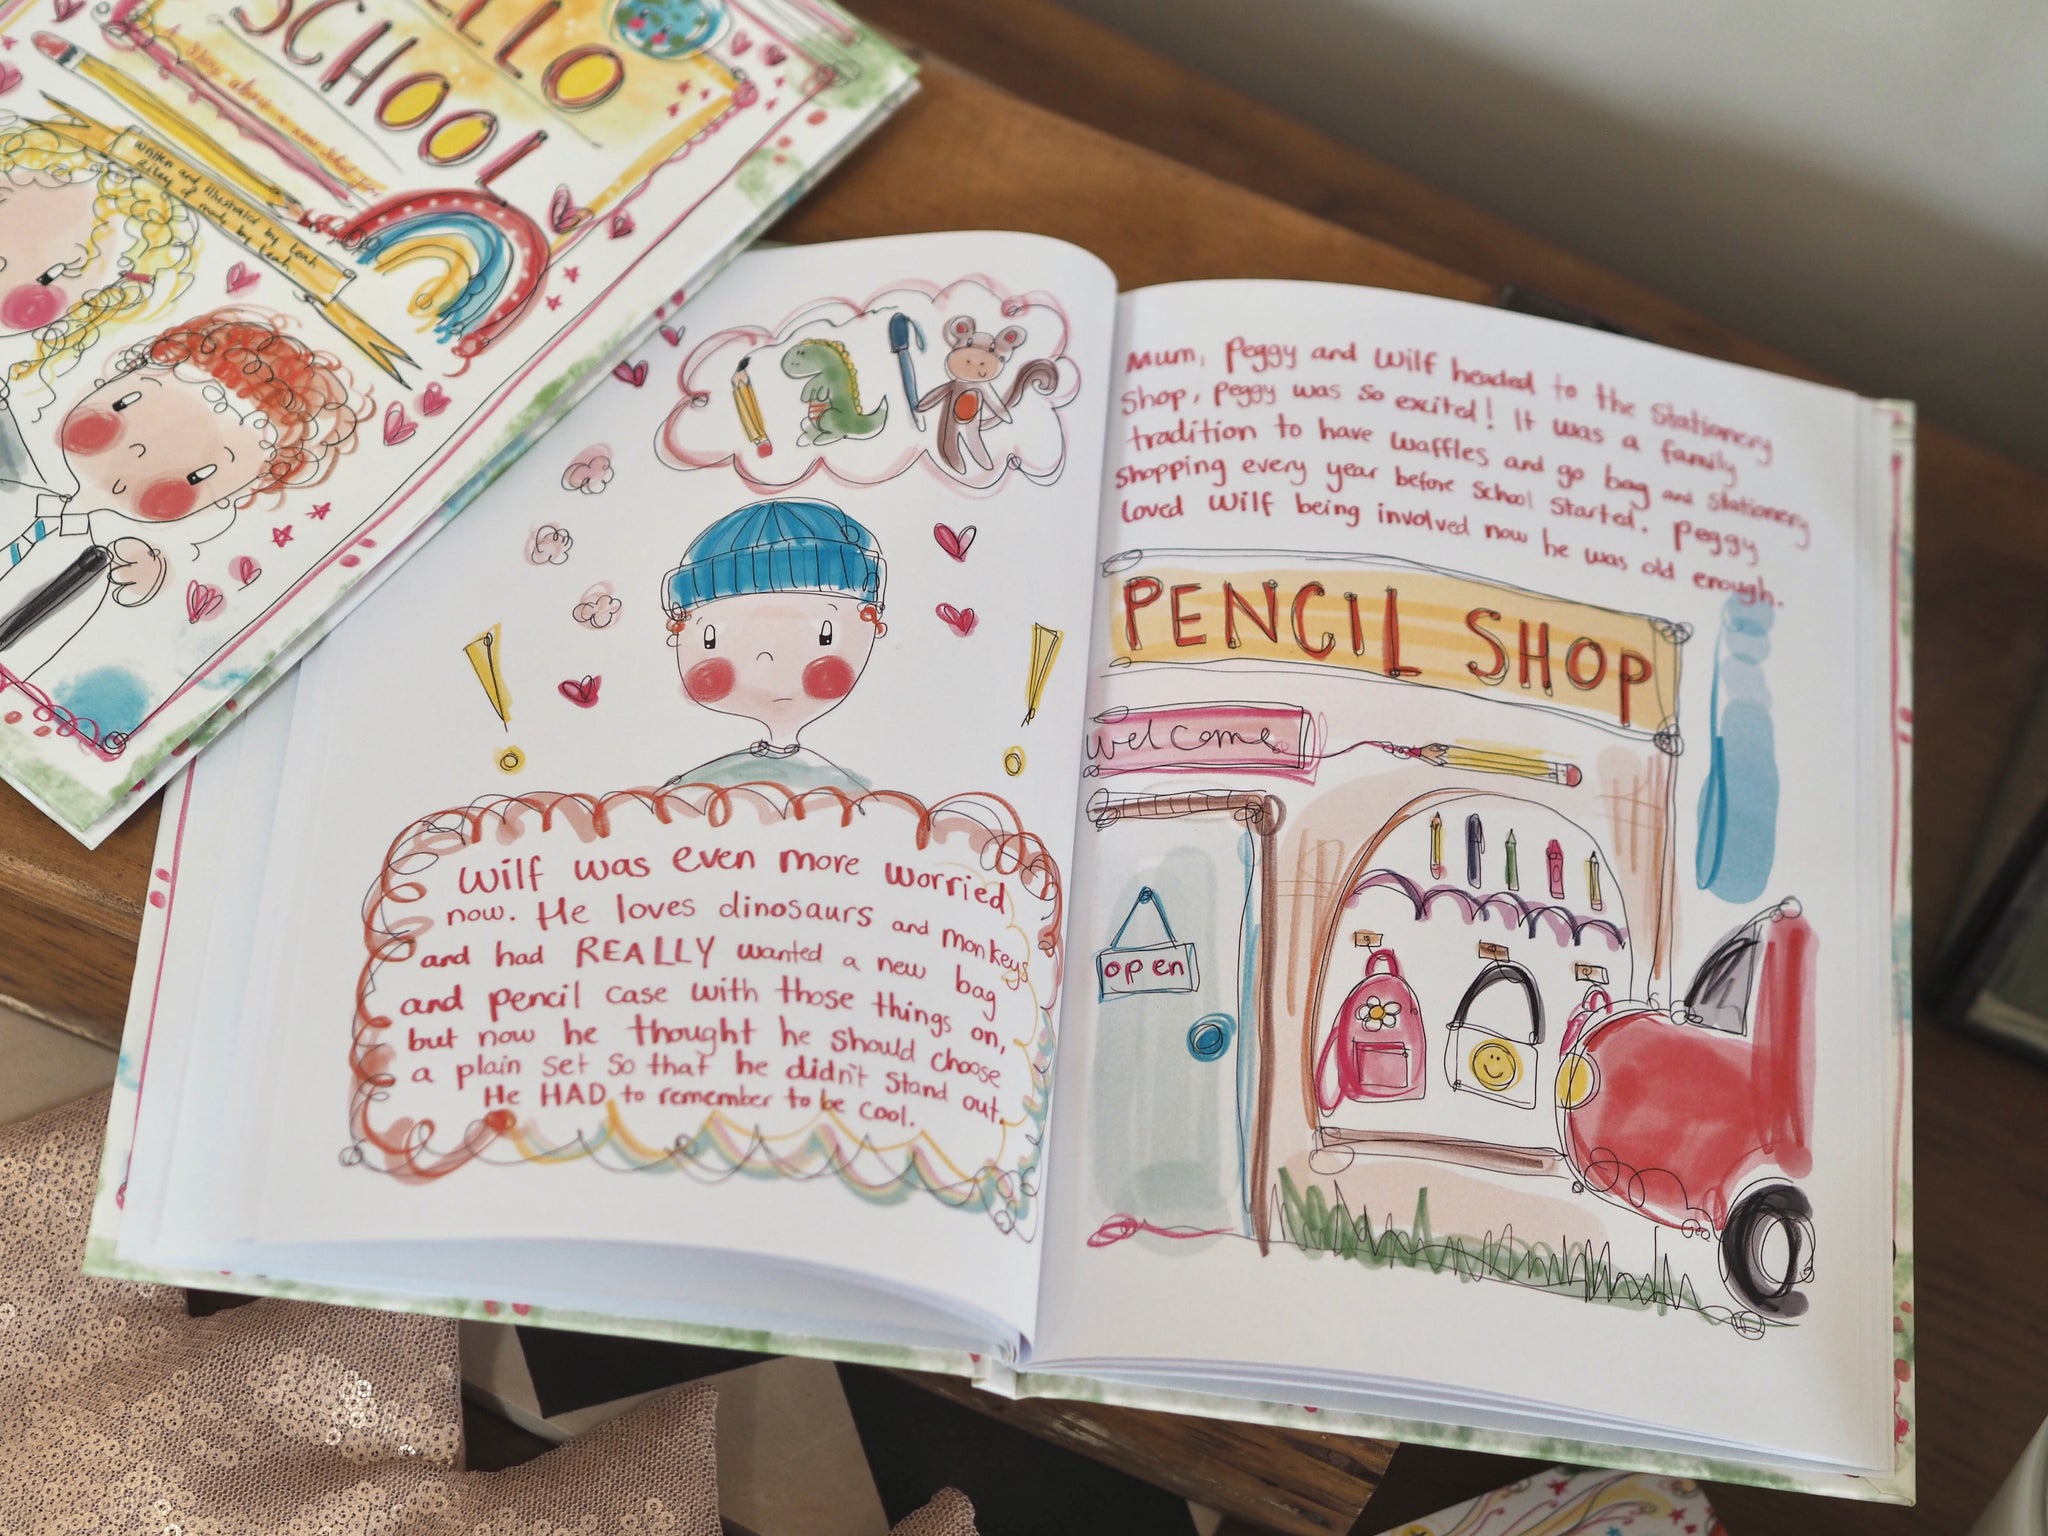 SCHOOL
A Story about a new School year
Written and illustrated by Leah
Riley of made by Leah.
Wilf was even more worried
now. He loves dinosaurs and monkeys
and had REALLY wanted a new bag
and pencil case with those things on,
but now he thought he should choose
a plain set so that he didn't stand out.
He HAD to remember to be cool.
Mum, Peggy and Wilf headed to the Stationery
Shop, Peggy was so excited! It was a family
tradition to have waffles and go bag and stationery
shopping every year before School started. Peggy
loved Wilf being involved now he was old enough.
PENCIL SHOP
welcome
open